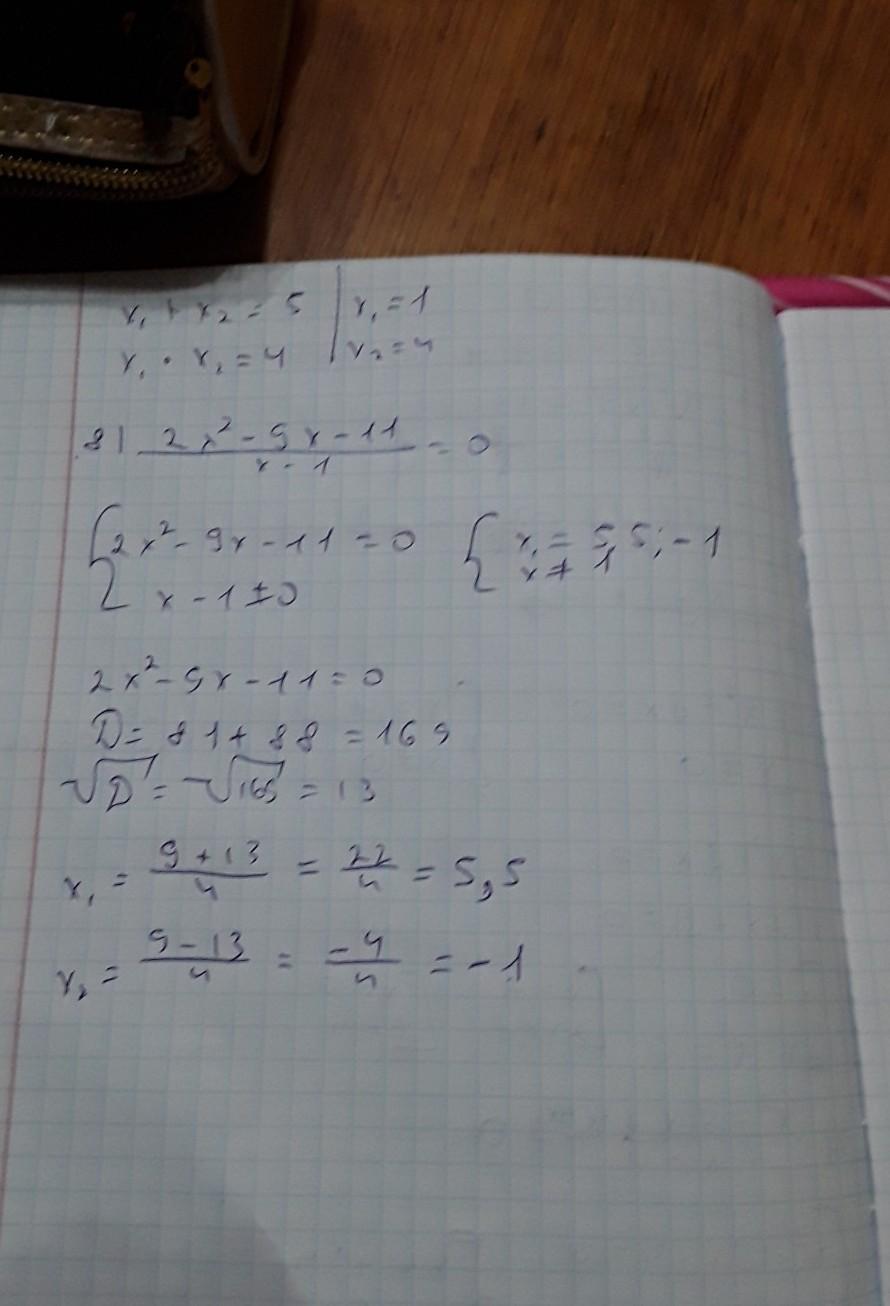 x₁ + x₂ = 5 | x₁ = 1
x₁ · x₂ = 4 | x₂ = 4
8) (2x² - 9x - 11)/(x - 1) = 0
{ 2x² - 9x - 11 = 0 { x₁ = 5,5; -1
x - 1 ≠ 0 x ≠ 1
2x² - 9x - 11 = 0
D = 81 + 88 = 169
√D = √169 = 13
x₁ = (9 + 13)/4 = 22/4 = 5,5
x₂ = (9 - 13)/4 = -4/4 = -1